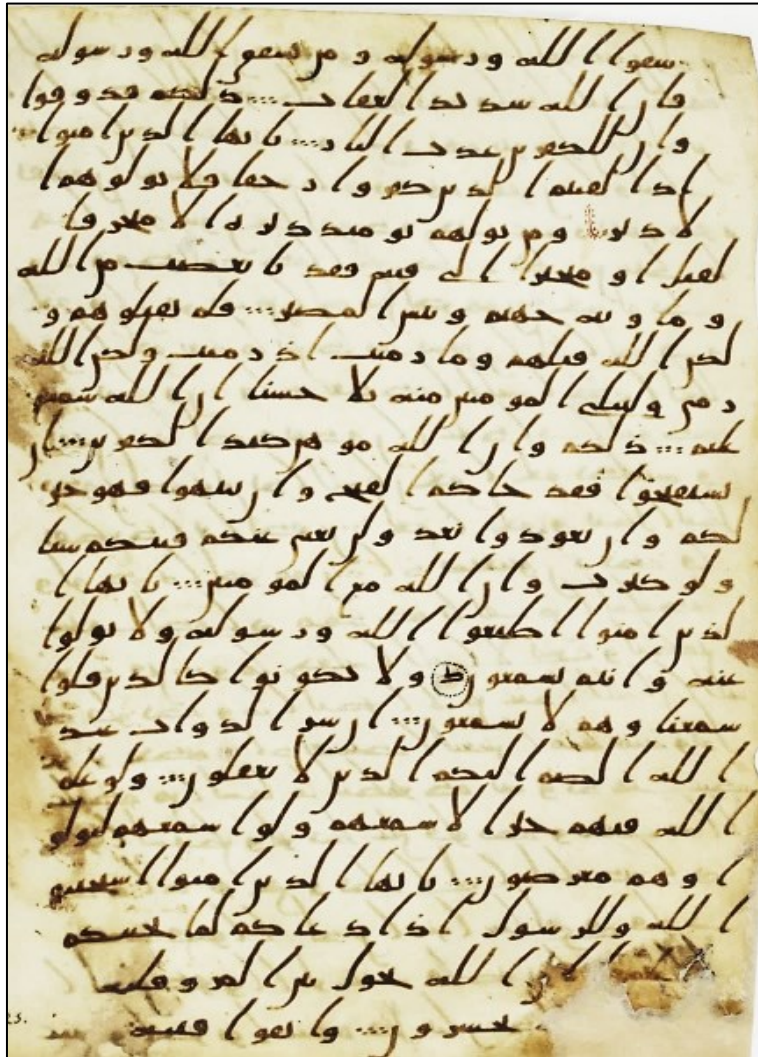 شقوا الله ورسوله ومن يشقق الله ورسوله
فان الله شديد العقاب ذلكم فذوقوا
وان للكفرين عذب النار يايها الذين امنوا
اذا لقيتم الذين كفروا زحفا فلا تولوهم ا
لادبر ومن يولهم يومئذ دبره الا متحرفا
لقتل او متحيزا الى فية فقد با بغضب من الله
وماويه جهنم وبيس المصير فلم تقتلوهم و
لكن الله قتلهم وما رميت اذ رميت ولكن الله
رمى وليبلى المومنين منه بلا حسنا ان الله سميع
عليم ذلكم وان الله موهن كيد الكفرين ان
تستفتحوا فقد جاكم الفتح وان تنتهوا فهو خير
لكم وان تعودوا نعد ولن تغنى عنكم فيتكم شيا
ولو كثرت وان الله مع المومنين يايها ا
لذين امنوا اطيعوا الله ورسوله ولا تولوا
عنه وانتم تسمعون ولا تكونوا كالذين قلوا
سمعنا وهم لا يسمعون ان شر الدواب عند
الله الصم البكم الذين لا يعقلون ولو علم
الله فيهم خيرا لاسمعهم ولو اسمعهم لتولو
ا وهم معرضون يايها الذين امنوا استجيبو
ا لله وللرسول اذا دعاكم لما يحييكم
ان الله يحول بين المر وقلبه
تحشرون واتقوا فتنة